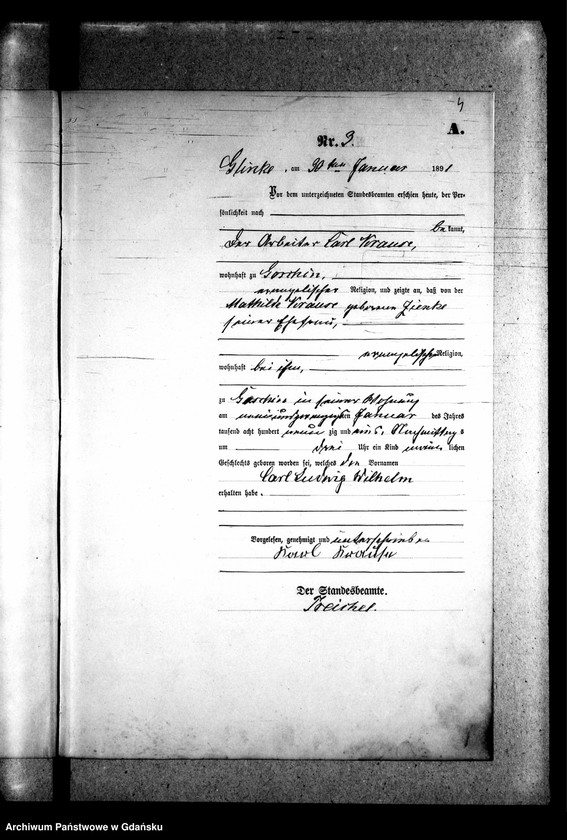 4
A.
Nr. 3.
Glinke, am 30ten Januar 1891
Vor dem unterzeichneten Standesbeamten erschien heute, der Per-
sönlichkeit nach
bekannt,
der Arbeiter Carl Krause,
wohnhaft zu Goschin,
evangelischer Religion, und zeigte an, daß von der
Mathilde Krause geborenen Zienke
seiner Ehefrau,
evangelischer Religion,
wohnhaft bei ihm,
zu Goschin in seiner Wohnung
am neunundzwanzigsten Januar des Jahres
tausend acht hundert neunzig und eins, Nachmittags
um drei Uhr ein Kind männlichen
Geschlechts geboren worden sei, welches den Vornamen
Carl Ludwig Wilhelm
erhalten habe.
Vorgelesen, genehmigt und unterschrieben
Karl Krause
Der Standesbeamte.
Archiwum Państwowe w Gdańsku